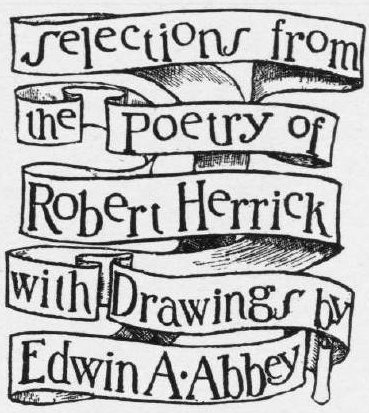 selections from
the poetry of
Robert Herrick
with Drawings by
Edwin A·Abbey